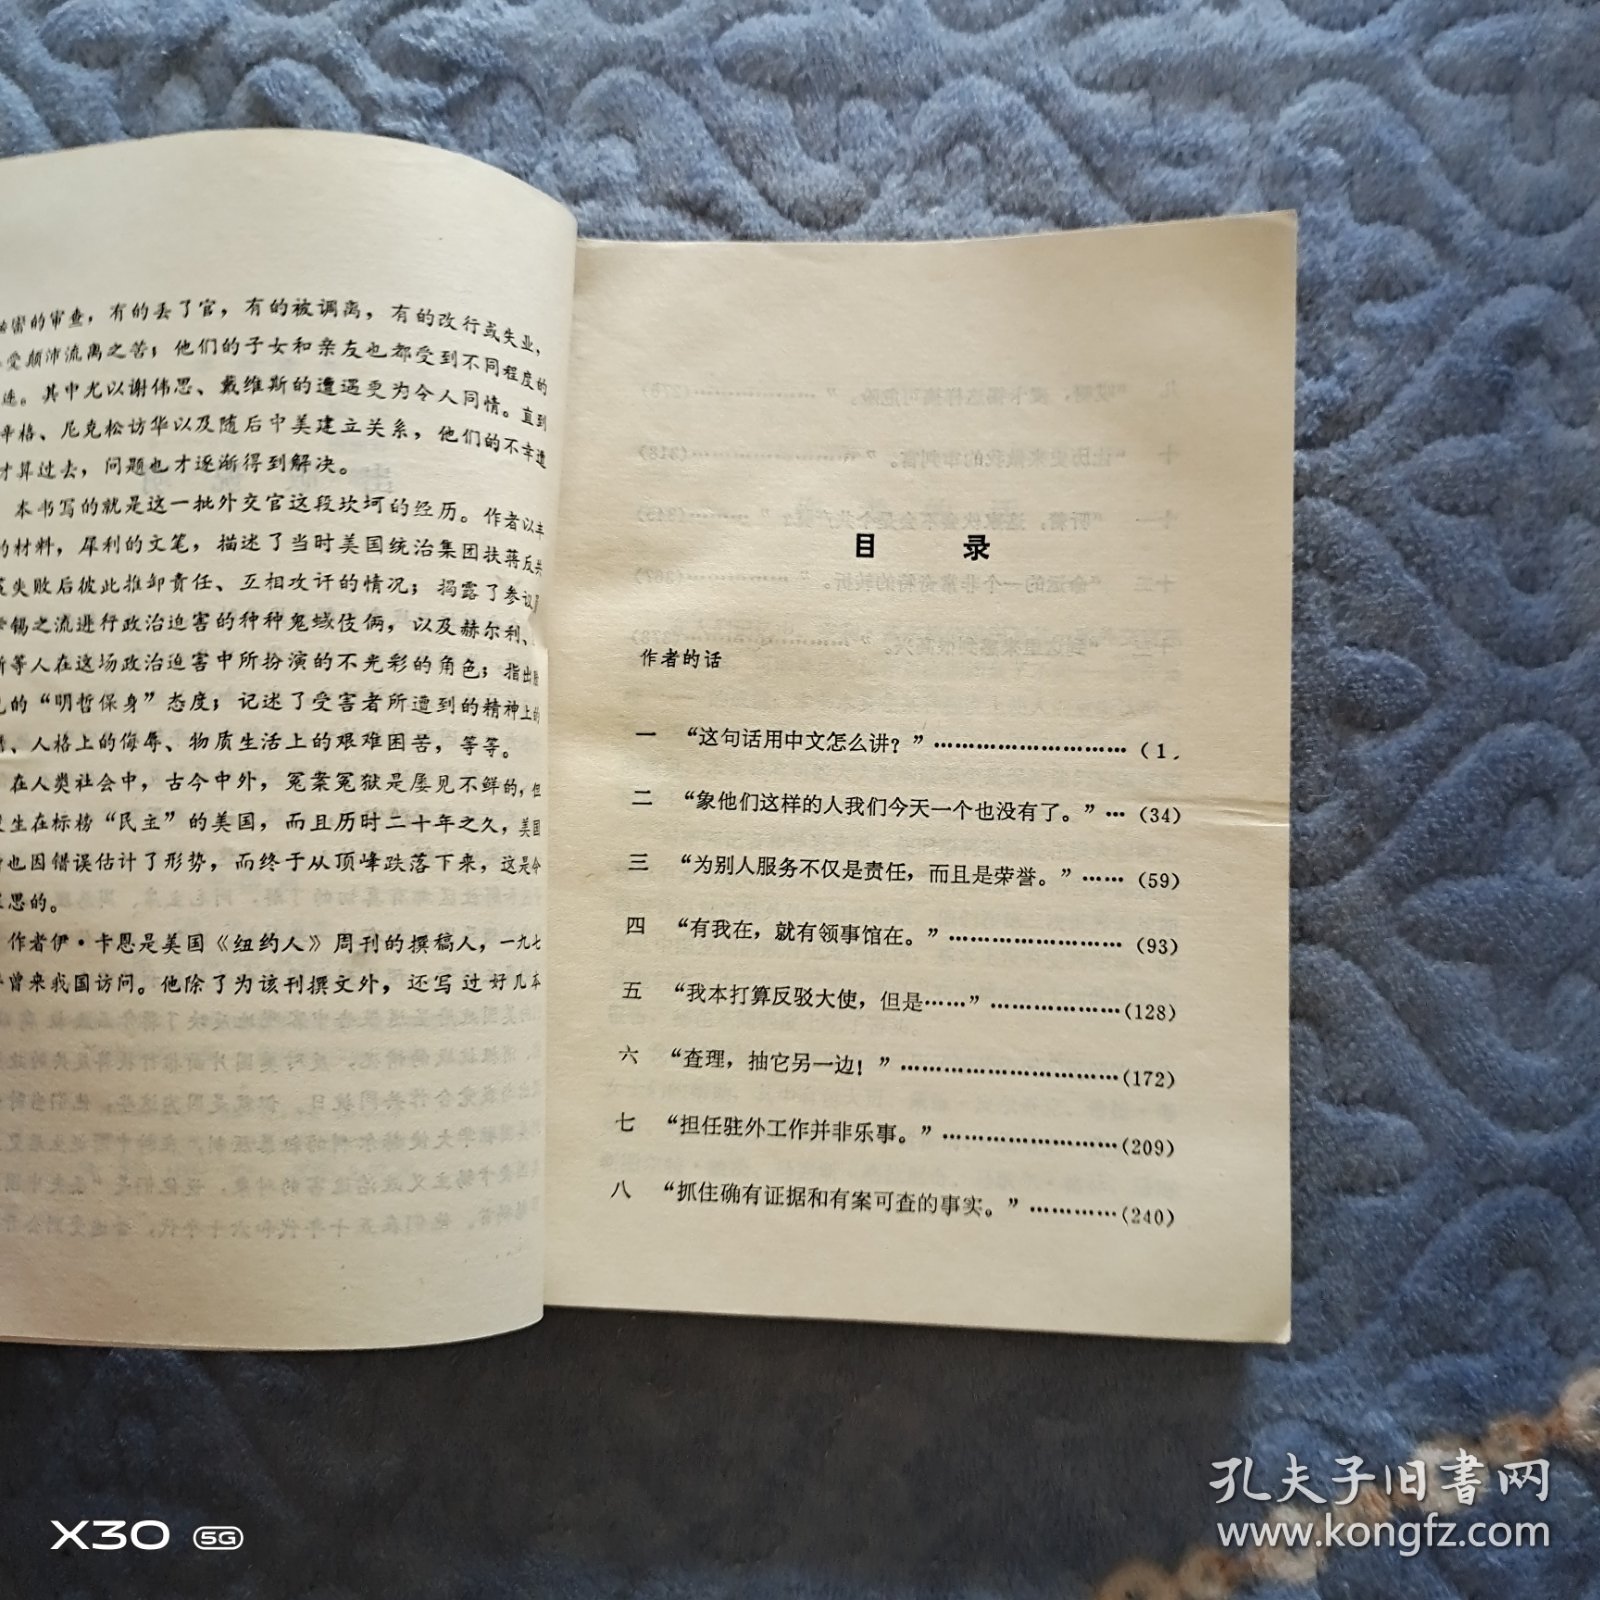 的审查，有的丢了官，有的被调离，有的改行或失业，
受颠沛流离之苦；他们的子女和亲友也都受到不同程度的
连。其中尤以谢伟思、戴维斯的遭遇更为令人同情。直到
辛格、尼克松访华以及随后中美建立关系，他们的不幸遭
才算过去，问题也才逐渐得到解决。
本书写的就是这一批外交官这段坎坷的经历。作者以丰
的材料，犀利的文笔，描述了当时美国统治集团扶蒋反共
失败后彼此推卸责任、互相攻讦的情况；揭露了参议
锡之流进行政治迫害的种种鬼蜮伎俩，以及赫尔利、
斯等人在这场政治迫害中所扮演的不光彩的角色；指出
的“明哲保身”态度；记述了受害者所遭到的精神上的
、人格上的侮辱、物质生活上的艰难困苦，等等。
在人类社会中，古今中外，冤案冤狱是屡见不鲜的，但
生在标榜“民主”的美国，而且历时二十年之久，美国
也因错误估计了形势，而终于从顶峰跌落下来，这是令
思的。
作者伊·卡恩是美国《纽约人》周刊的撰稿人，一九七
曾来我国访问。他除了为该刊撰文外，还写过好几本
目 录
作者的话
一 “这句话用中文怎么讲？”…………………………（1
二 “象他们这样的人我们今天一个也没有了。”…（34）
三 “为别人服务不仅是责任，而且是荣誉。”……（59）
四 “有我在，就有领事馆在。”……………………（93）
五 “我本打算反驳大使，但是……”………………（128）
六 “查理，抽它另一边！”…………………………（172）
七 “担任驻外工作并非乐事。”……………………（209）
八 “抓住确有证据和有案可查的事实。”…………（240）
X30 5G
孔夫子旧书网
www.kongfz.com